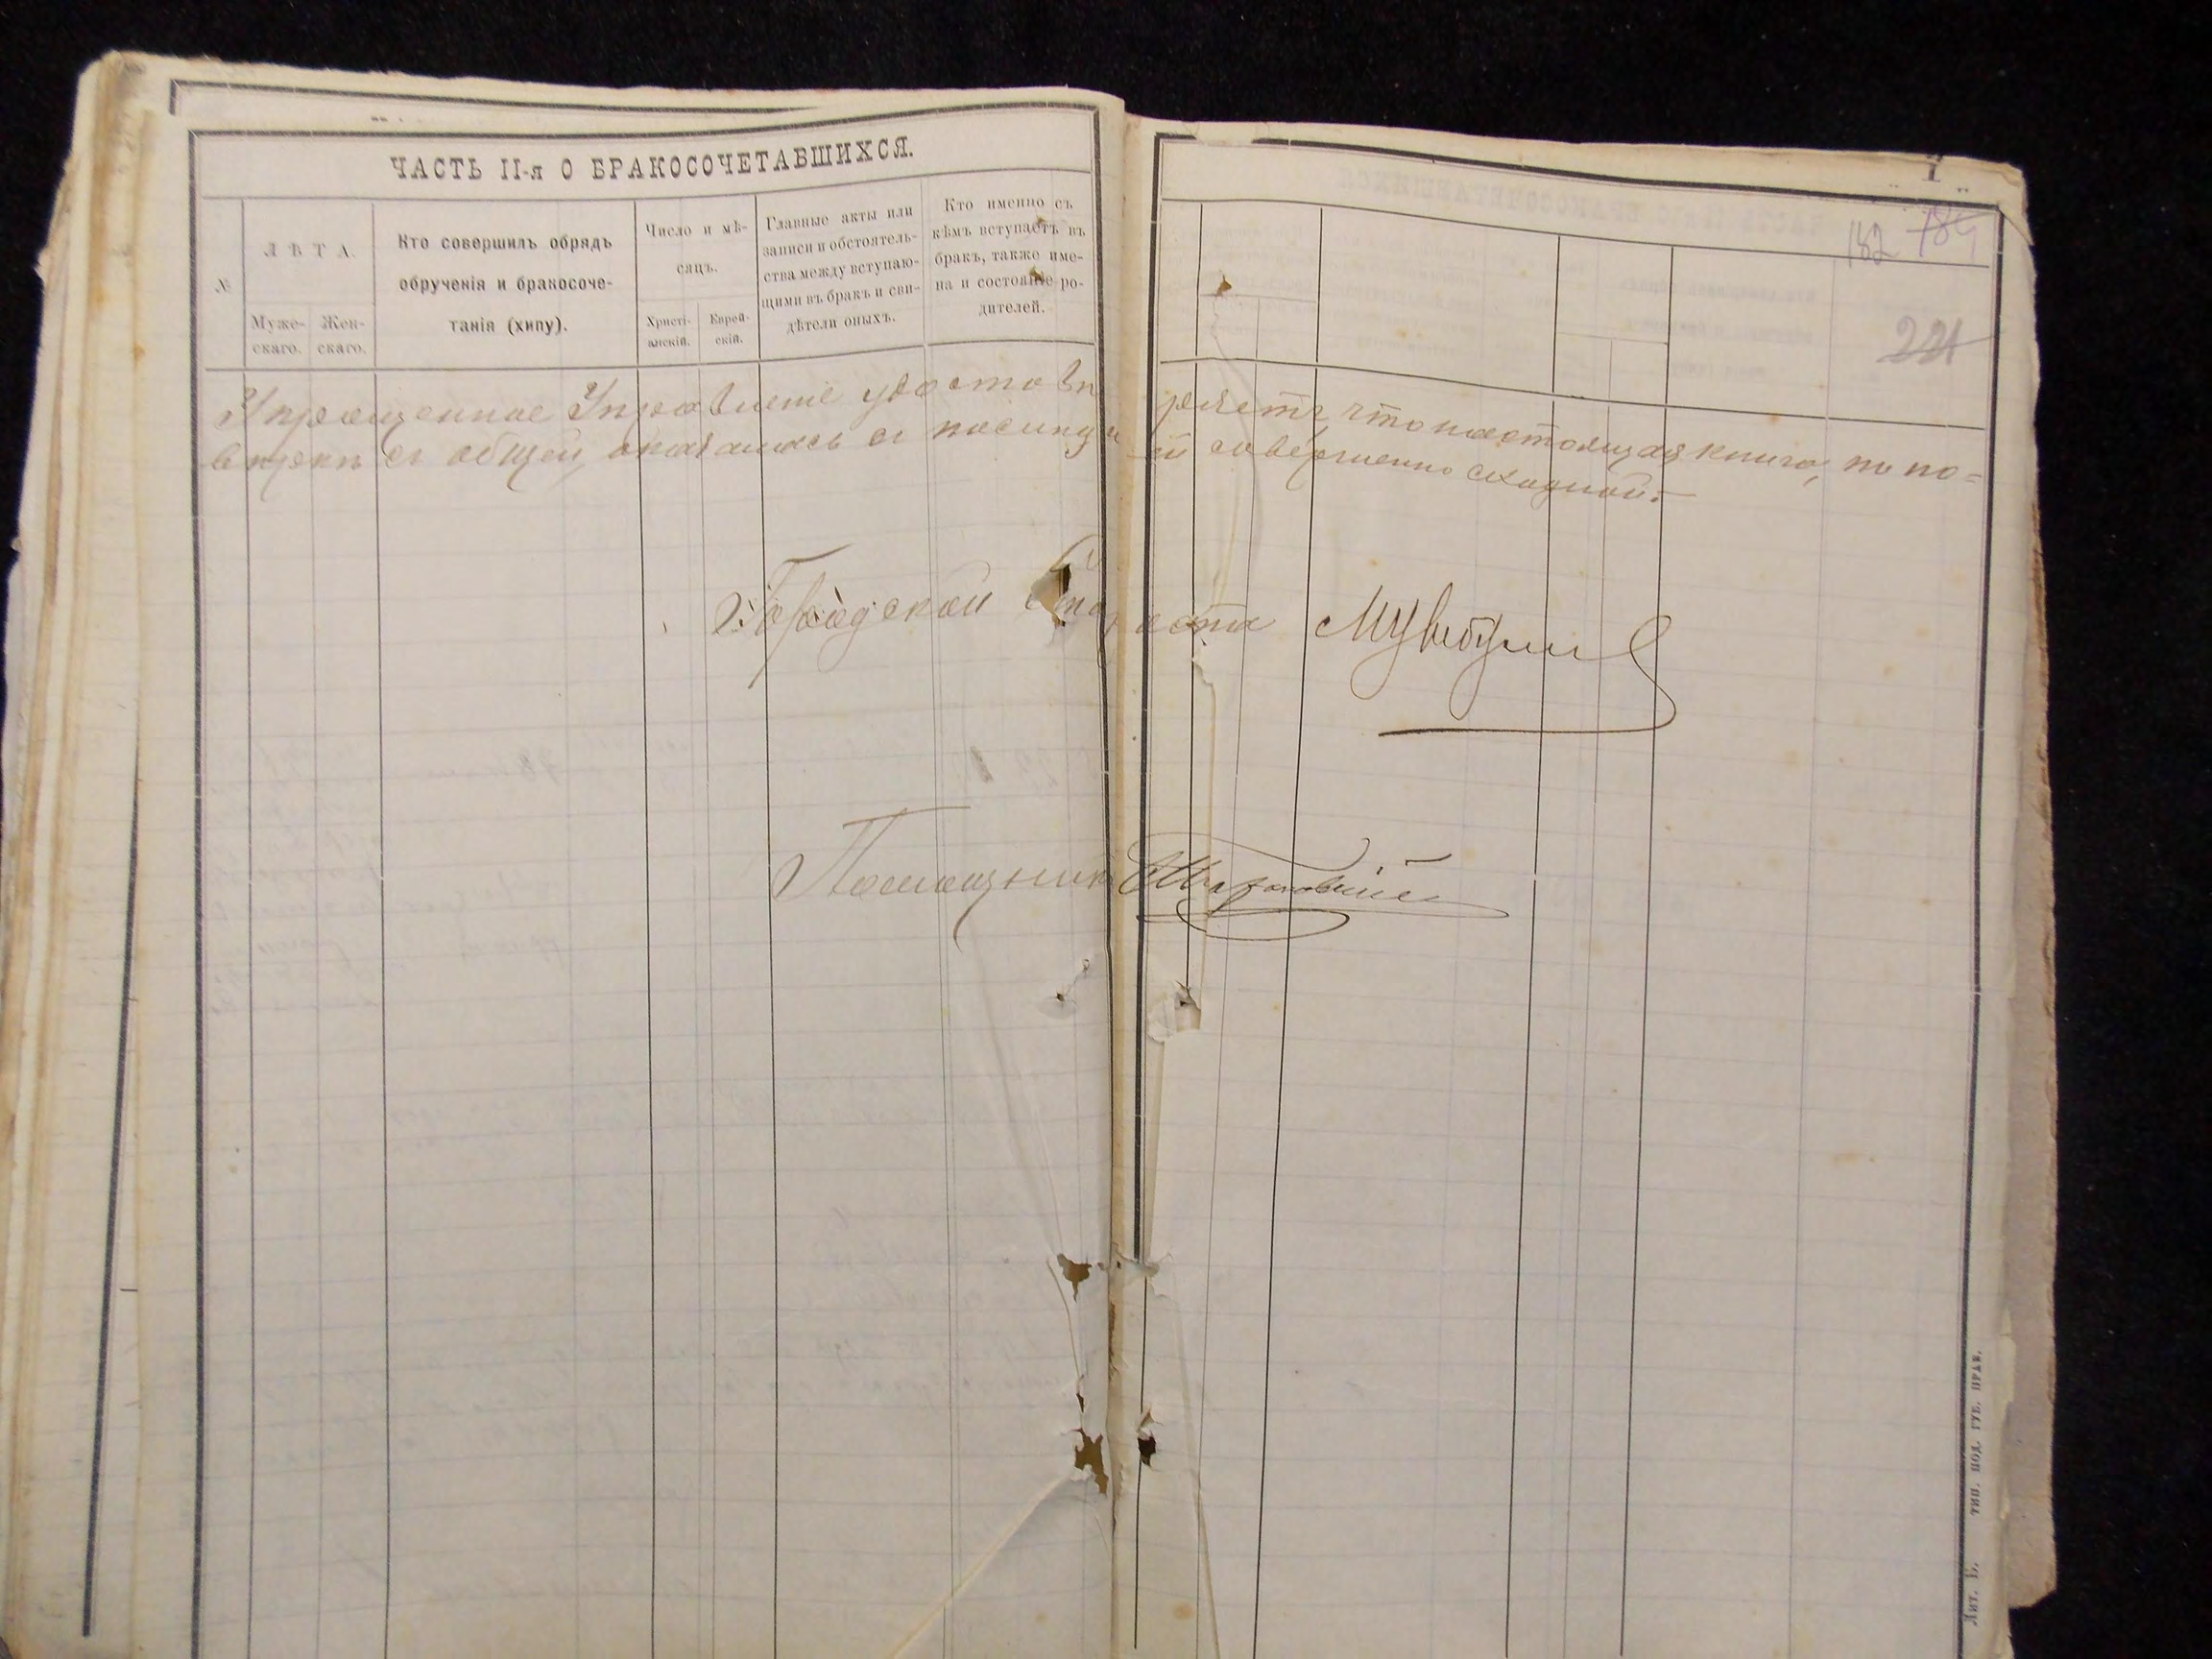 ЧАСТЬ II-я О БРАКОСОЧЕТАВШИХСЯ.
№
ЛѢТА.
Муже-
скаго.
Жен-
скаго.
Кто совершилъ обрядъ
обрученія и бракосоче-
танія (хипу).
Число и мѣ-
сяцъ.
Христі-
анскій.
Еврей-
скій.
Главные акты или
записи и обстоятель-
ства между вступаю-
щими въ бракъ и сви-
дѣтели оныхъ.
Кто именно съ
кѣмъ вступаетъ въ
бракъ, также име-
на и состояніе ро-
дителей.
182 184
221
Упрощенное Управленіе удостовѣряетъ, что настоящая книга, по по=
вѣркѣ съ общей, оказалась съ совершенно сходной.
Городской Староста
Помощникъ
Лит. Б. тип. под. губ. прав.